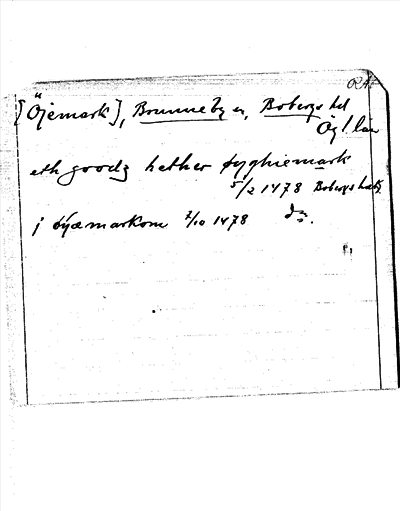 RA.
[Öjemark], Brunneby sn, Bobergs hd
Ög l län
eth goodz hether øyghiemark
5/2 1478 Bobergs hd
j öyæmarkom 2/10 1478 do.